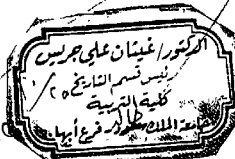 الدكتور/غيثان علي جريس
رئيس قسم التاريخ
كلية التربية
جامعة الملك فرع أبها